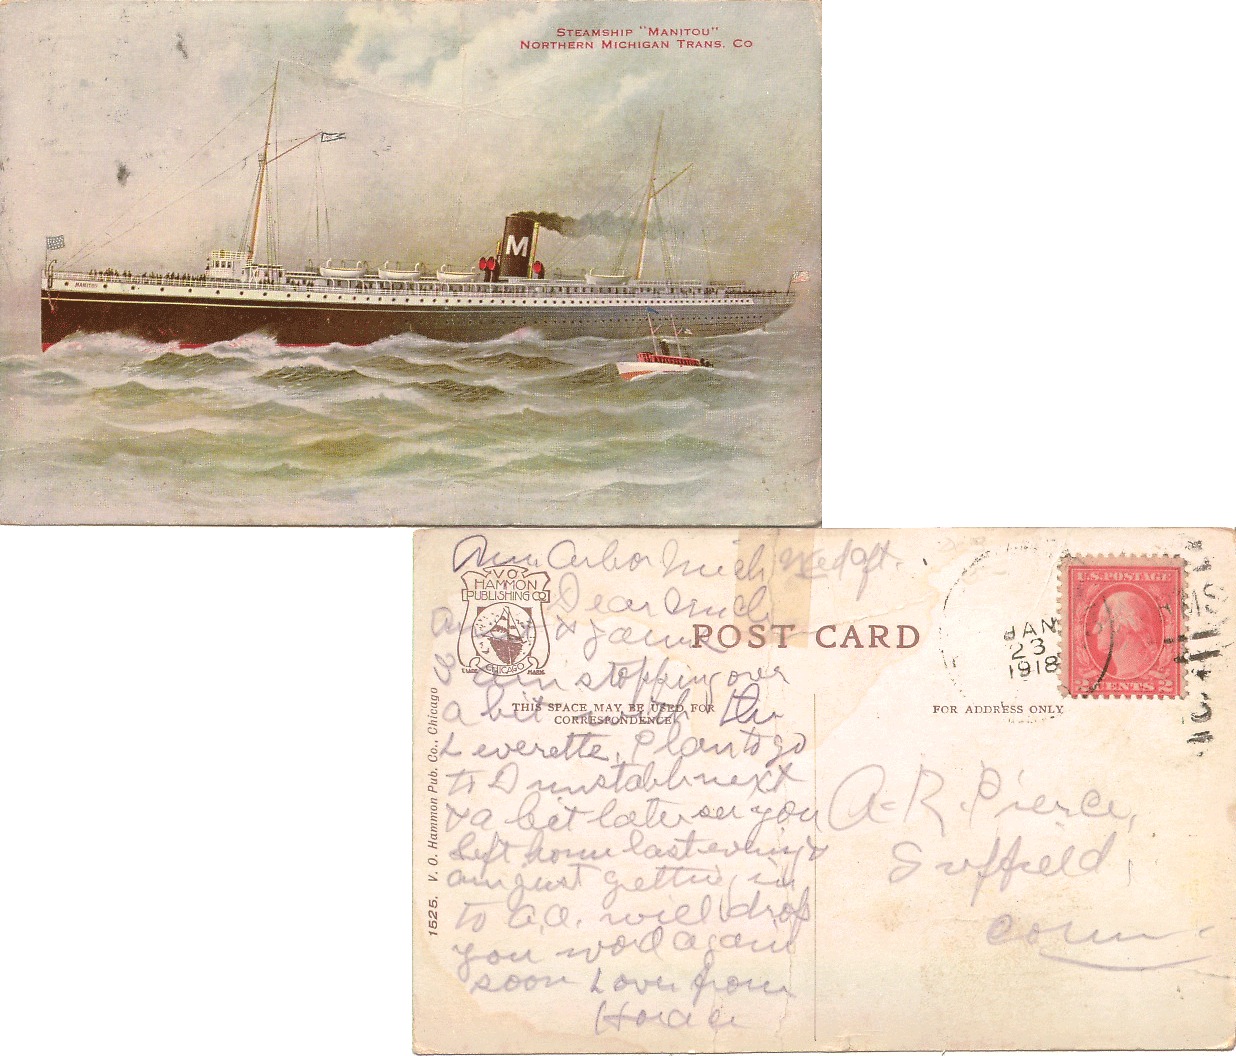 STEAMSHIP "MANITOU"
NORTHERN MICHIGAN TRANS. CO
M
MANITOU
Ann Arbor Mich Wed aft.
V.O.
HAMMON
PUBLISHING CO
CHICAGO
TRADE MARK
POST CARD
THIS SPACE MAY BE USED FOR
CORRESPONDENCE
FOR ADDRESS ONLY
1525. V. O. Hammon Pub. Co., Chicago
JAN
23
1918
U.S. POSTAGE
2 CENTS 2
Dear
&
stopping over
a bit with the
Leverette, Plan to go
to Dunstable next
& a bit later see you
Left home last evening &
am just getting in
to A.A. will drop
you word again
soon Love from
Horace
A. R. Pierce,
Suffield,
Conn.